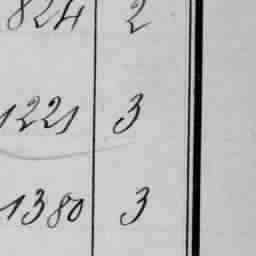 824 2
1221 3
1380 3